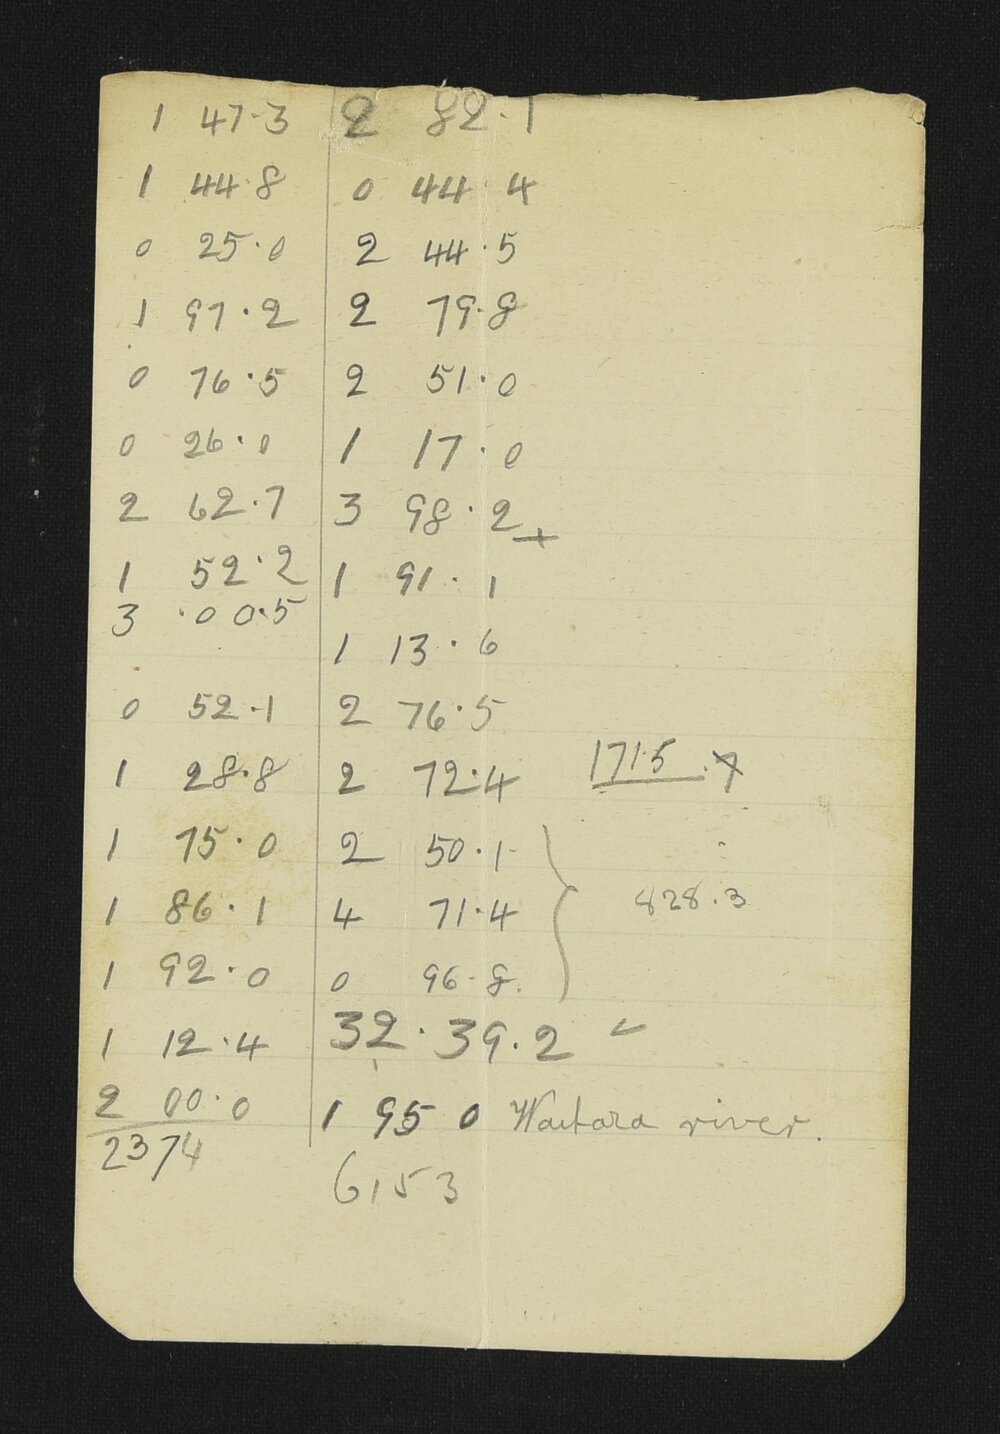 1 47.3 2 82.1
1 44.8 0 44.4
0 25.0 2 44.5
1 97.2 2 79.8
0 76.5 2 51.0
0 26.0 1 17.0
2 62.7 3 98.2 +
1 52.2 1 91.1
3 .00.5
1 13.6
0 52.1 2 76.5
1 28.8 2 72.4 171.5 .7
1 75.0 2 50.1
1 86.1 4 71.4 828.3
1 92.0 0 96.8.
1 12.4 32.39.2 ✓
2 00.0 1 95 0 Waitara river.
2374
6153